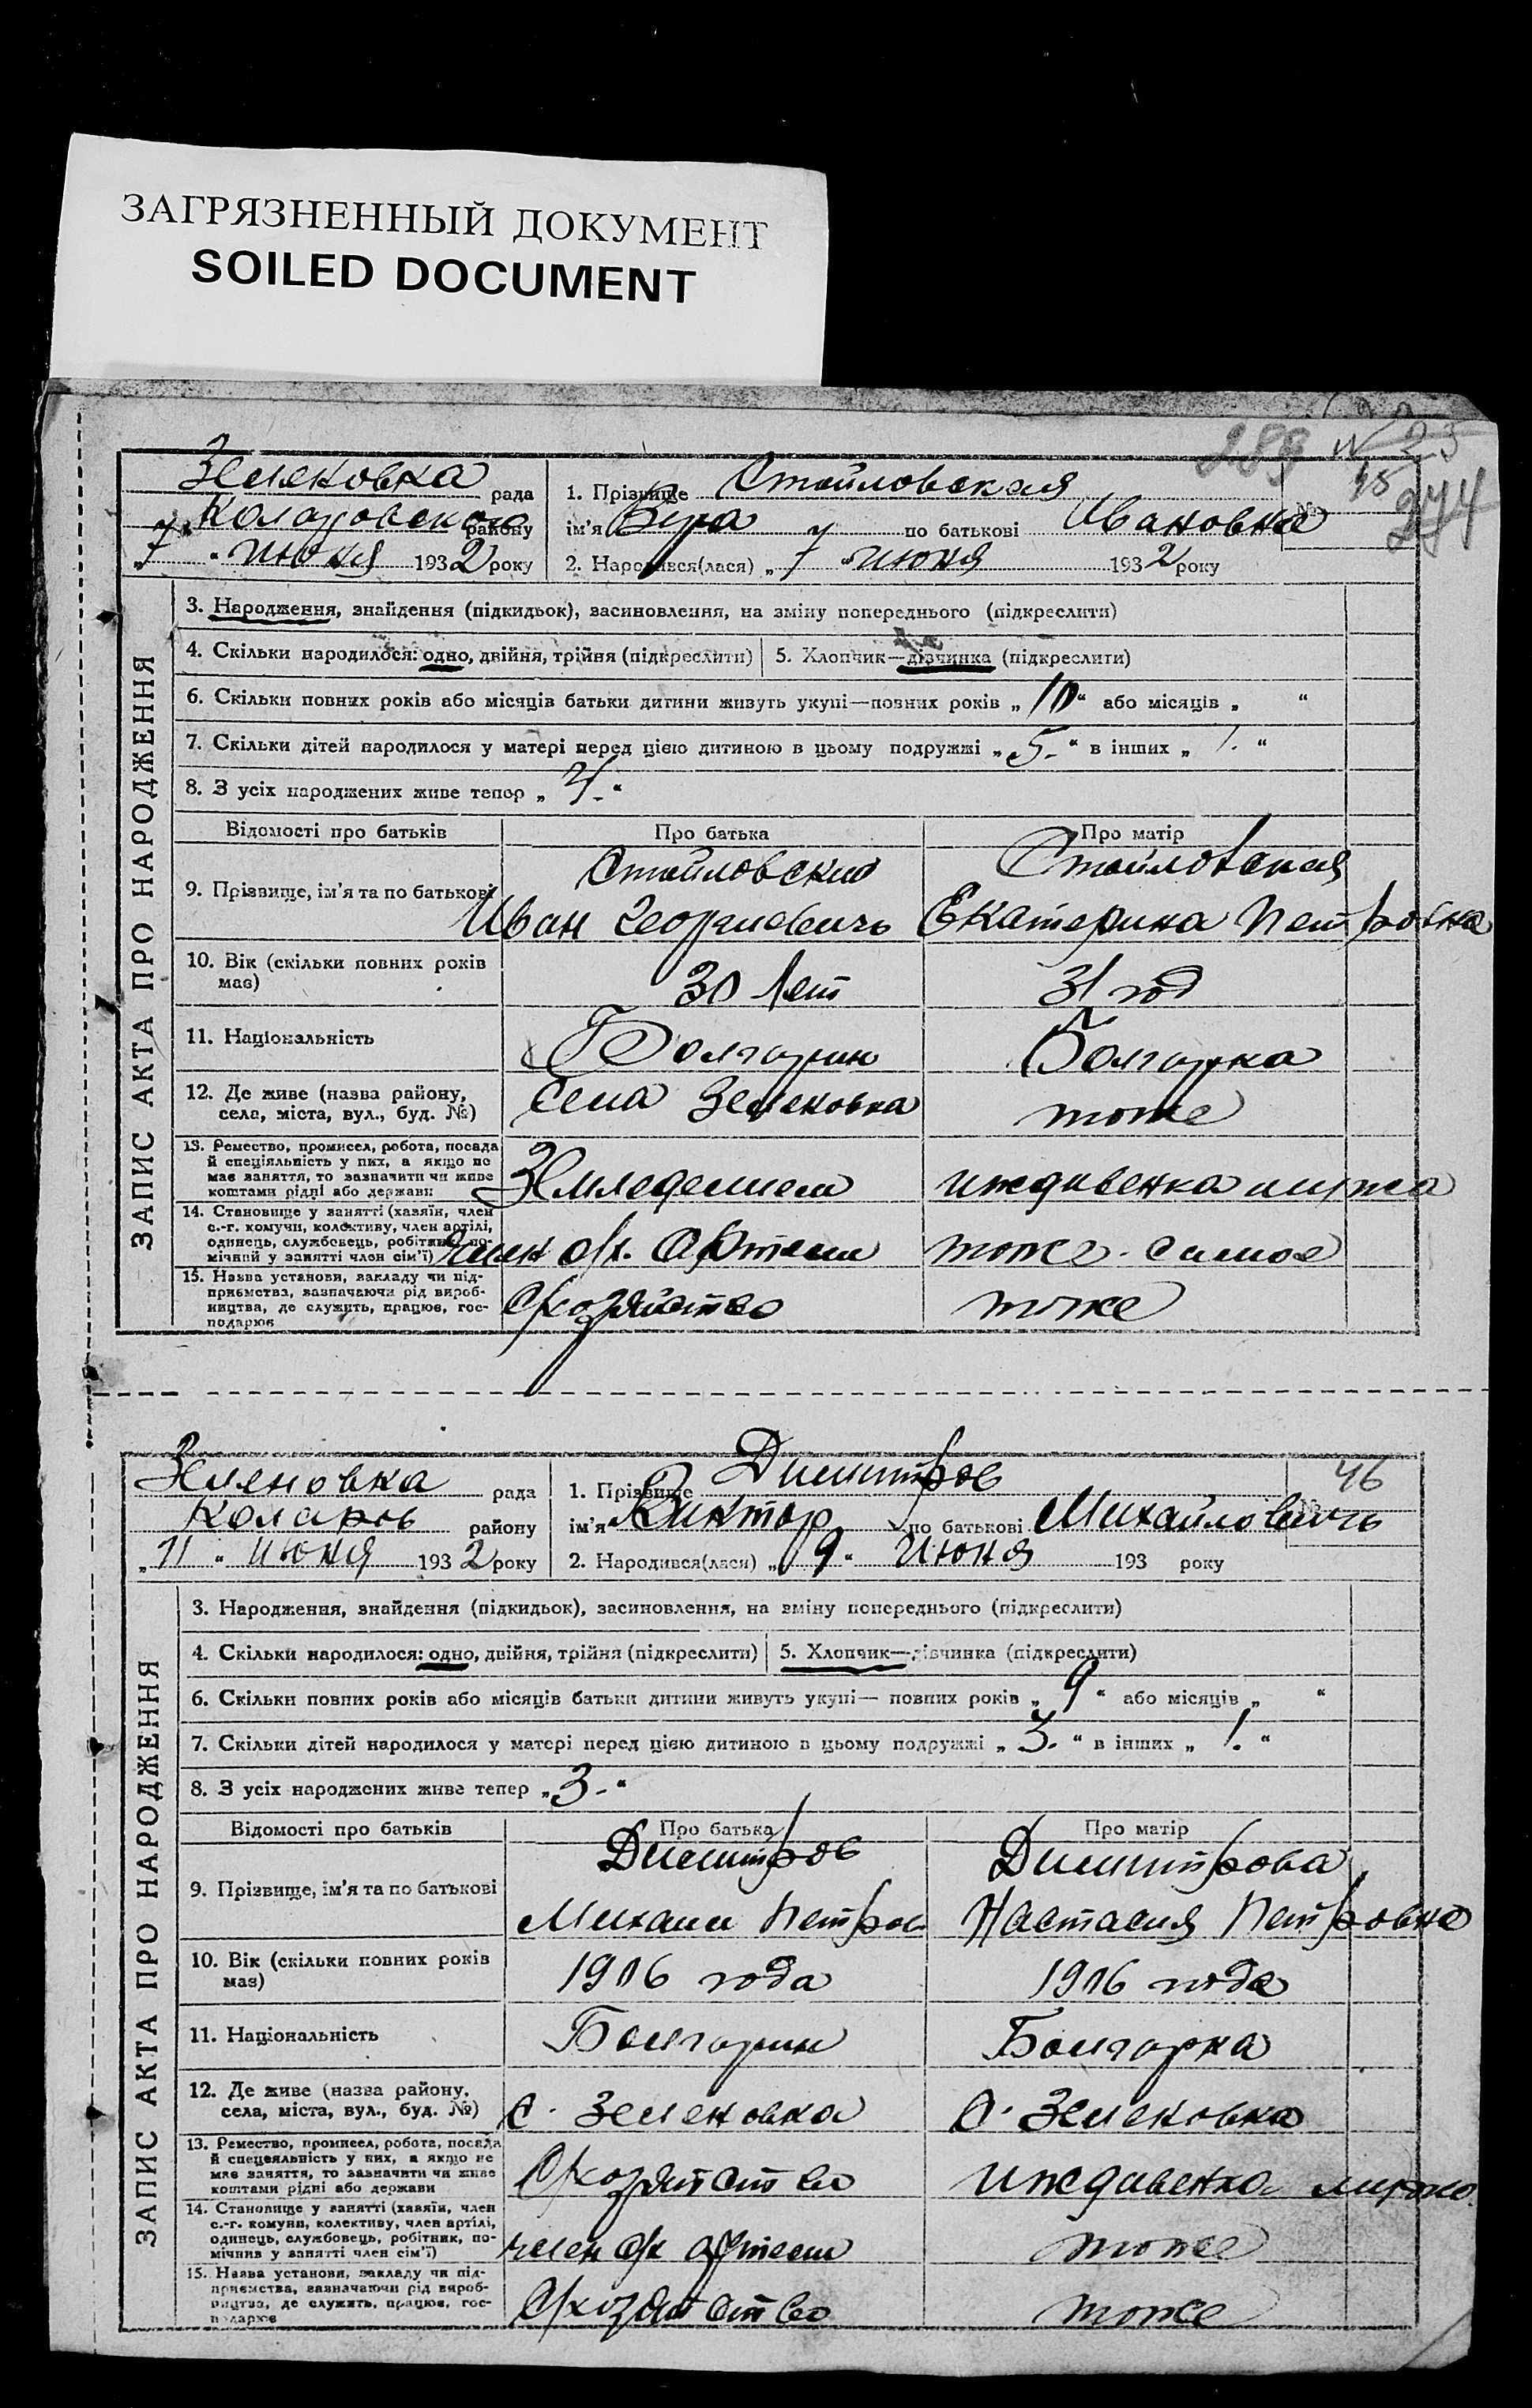 ЗАГРЯЗНЕННЫЙ ДОКУМЕНТ
SOILED DOCUMENT
274
Зеленовка рада
Коларовского району
„7“ июня 1932 року
1. Прізвище Стойловская
ім’я Вера по батькові Ивановна
2. Народився(лася) „7“ июня 1932 року
№ 45
ЗАПИС АКТА ПРО НАРОДЖЕННЯ
3. Народження, знайдення (підкидьок), засиновлення, на зміну попереднього (підкреслити)
4. Скільки народилося: одно, двійня, трійня (підкреслити) 5. Хлопчик—дівчинка (підкреслити)
6. Скільки повних років або місяців батьки дитини живуть укупі—повних років „10“ або місяців „ “
7. Скільки дітей народилося у матері перед цією дитиною в цьому подружжі „5.“ в інших „ “
8. З усіх народжених живе тепер „ “
Відомості про батьків Про батька Про матір
9. Прізвище, ім’я та по батькові
Стойловский Стойловская
Иван Георгиевичь Екатерина Петровна
10. Вік (скільки повних років має) 30 лет 31 год
11. Національність Болгарин Болгарка
12. Де живе (назва району, села, міста, вул., буд. №) Села Зеленовка тоже
13. Ремество, промисел, робота, посада
й спеціяльність у них, а якщо не
має заняття, то зазначити чи живе
коштами рідні або держави
иждивенка мужа
14. Становище у занятті (хазяїн, член
с.-г. комуни, колективу, член артілі,
одинець, службовець, робітник, по-
мічний у занятті член сім’ї)
член с/х. Артели тоже самое
15. Назва установи, закладу чи під-
приємства, зазначаючи рід вироб-
ництва, де служить, працює, гос-
подарює
с/хозяйство тоже
Зеленовка рада
Коларов району
„11“ июня 1932 року
1. Прізвище Димитров
ім’я Виктор по батькові Михайловичь
2. Народився(лася) „9“ Июня 193 року
№ 46
ЗАПИС АКТА ПРО НАРОДЖЕННЯ
3. Народження, знайдення (підкидьок), засиновлення, на зміну попереднього (підкреслити)
4. Скільки народилося: одно, двійня, трійня (підкреслити) 5. Хлопчик—дівчинка (підкреслити)
6. Скільки повних років або місяців батьки дитини живуть укупі— повних років „9“ або місяців „ “
7. Скільки дітей народилося у матері перед цією дитиною в цьому подружжі „3.“ в інших „ “
8. З усіх народжених живе тепер „3-“
Відомості про батьків Про батька Про матір
9. Прізвище, ім’я та по батькові
Димитров Димитрова
Михаил Петров Настасия Петровна
10. Вік (скільки повних років має) 1906 года 1906 года
11. Національність Болгарин Болгарка
12. Де живе (назва району, села, міста, вул., буд. №) С. Зеленовка С. Зеленовка
13. Ремество, промисел, робота, посада
й спецеяльність у них, а якщо не
має заняття, то зазначити чи живе
коштами рідні або держави
с/хозяйство иждивенка мужа.
14. Становище у занятті (хазяїн, член
с.-г. комуни, колективу, член артілі,
одинець, службовець, робітник, по-
мічния у занятті член сім’ї)
член с/х артели тоже
15. Назва установи, закладу чи під-
приємства, зазначаючи рід вироб-
ництва, де служить, працює, гос-
подарює
с/хозяйство тоже